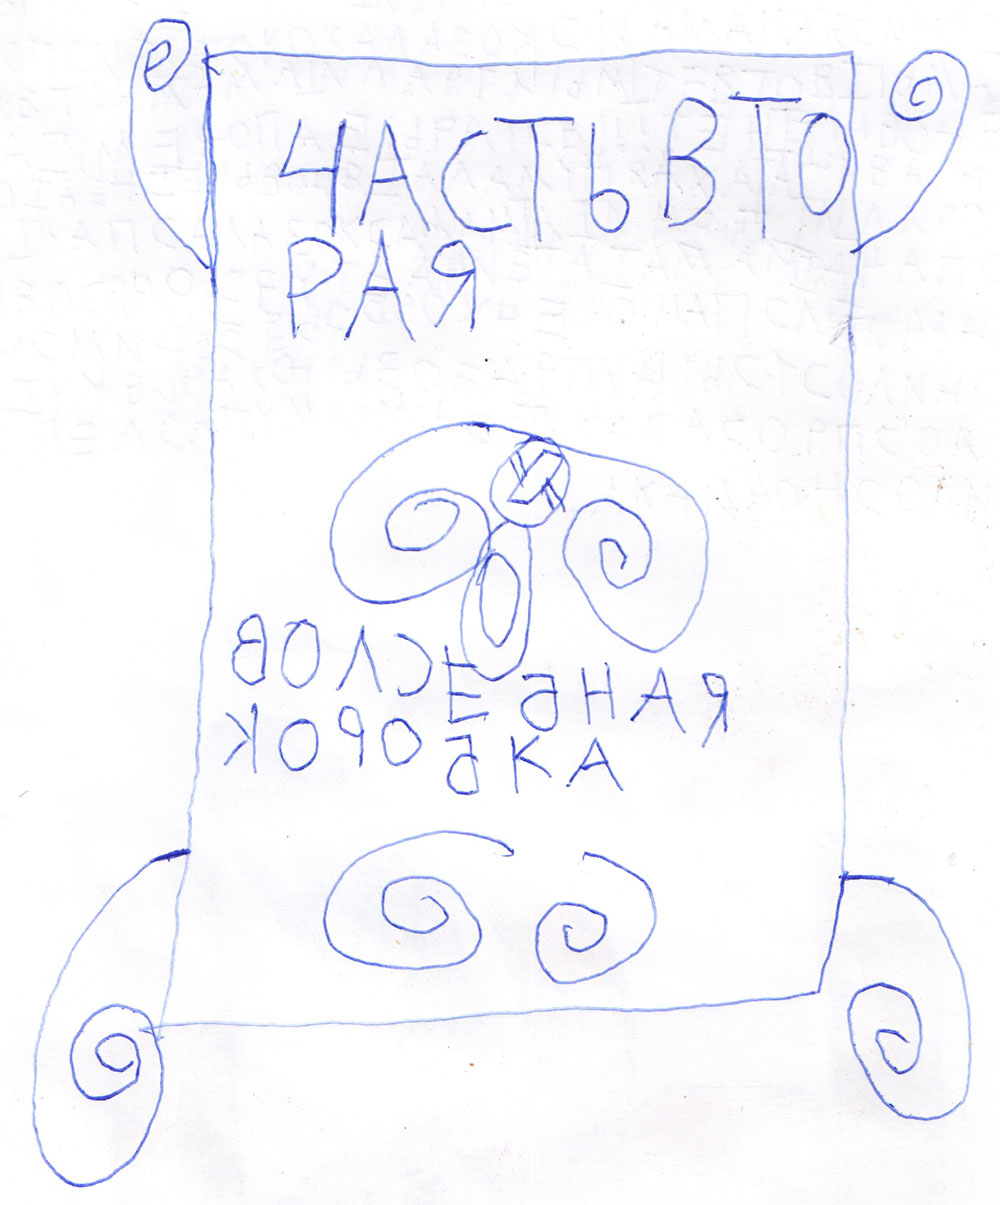 ЧАСТЬ ВТО
РАЯ
ВОЛСЕБНАЯ
КОРОБКА